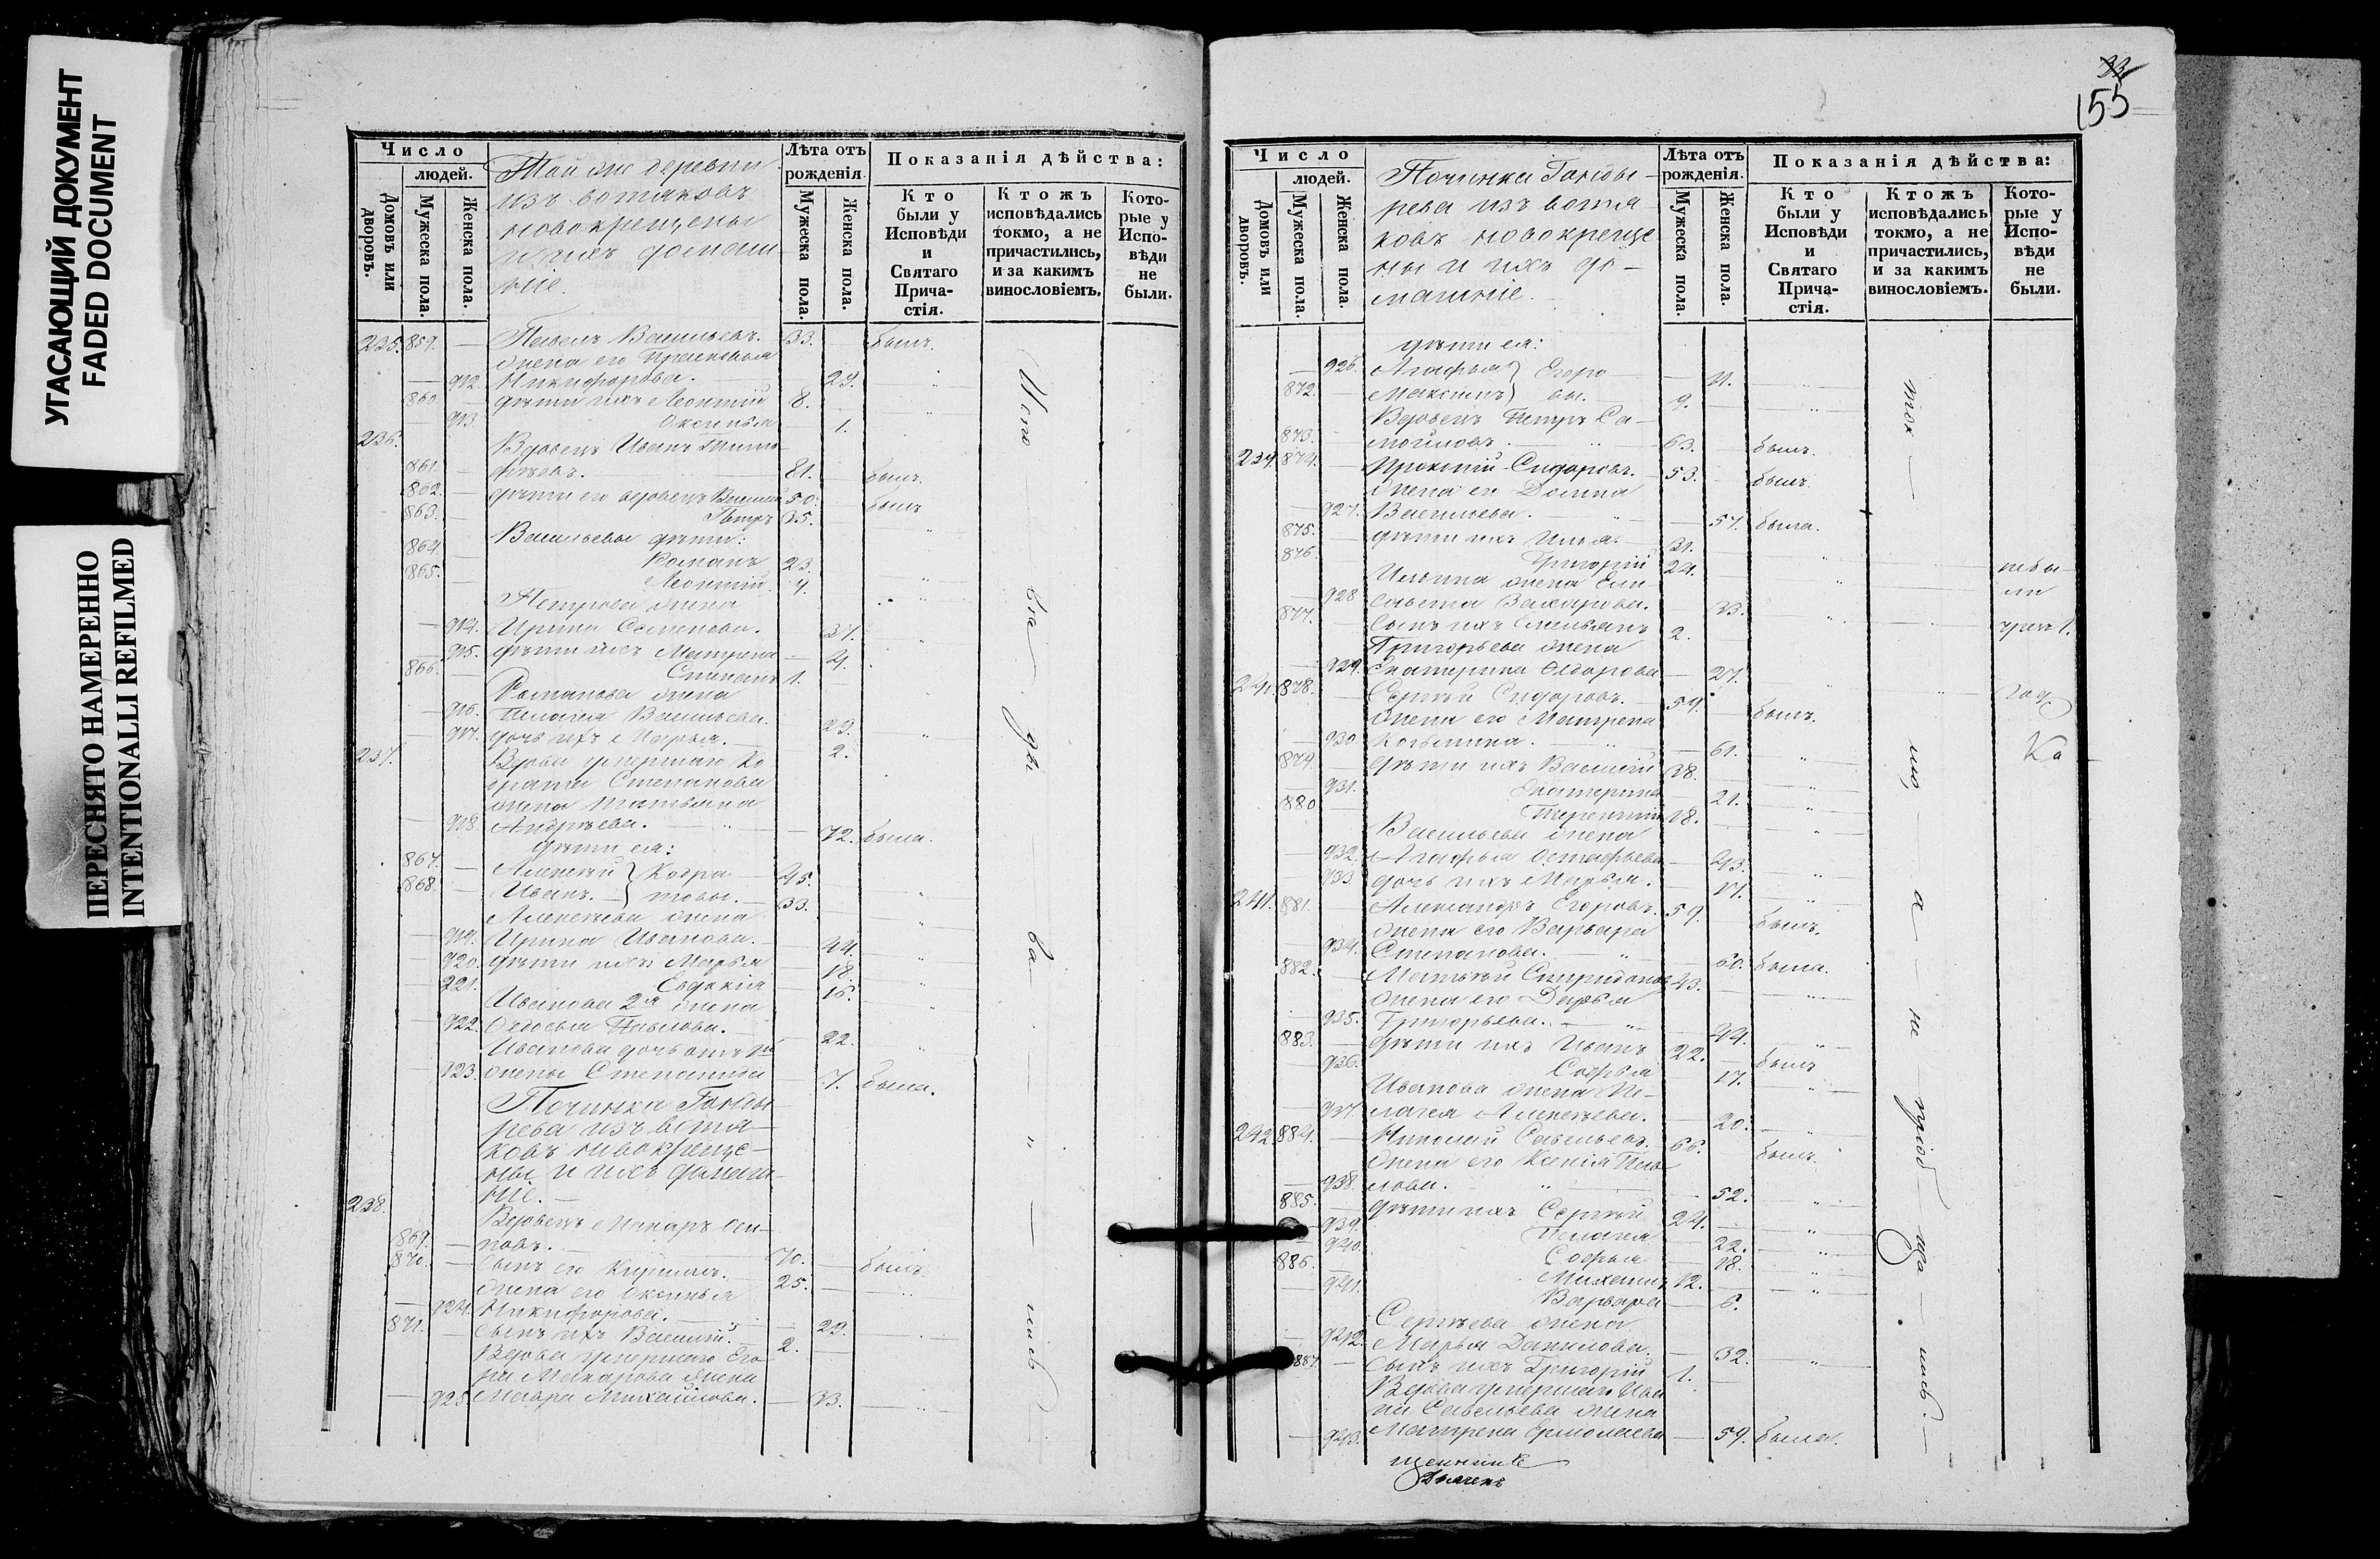 УГАСАЮЩИЙ ДОКУМЕНТ
FADED DOCUMENT
ПЕРЕСНЯТО НАМЕРЕННО
INTENTIONALLI REFILMED
Число
людей.
Домовъ или дворовъ.
Мужеска пола.
Женска пола.
Той же деревни
изъ вотяковъ
новокрещены
и ихъ домаш
ніе.
Лѣта отъ
рожденія.
Мужеска пола.
Женска пола.
Показанія дѣйства:
Кто
были у
Исповѣди
и
Святаго
Прича-
стія.
Ктожъ
исповѣдались
токмо, а не
причастились,
и за какимъ
винословіемъ.
Кото-
рые у
Испо-
вѣди
не
были.
235. 859. — Павелъ Васильевъ. 33. — былъ.
жена его Прасковья
— 912. Никифорова. 29.
860. — дѣти ихъ Леонтій 8.
— 913. Оксинья 1.
236. Вдовецъ Иванъ Тимо
861. — фѣевъ. 81. — былъ.
862. — дѣти его вдовецъ Василій 50. былъ
863. Петръ 35.
Васильевы дѣти:
864 Романъ 23.
865. — Леонтій 4.
Петрова жена
— 914. Ирина Семенова. 37.
— 915. дѣти ихъ Матрена — 4.
866. — Степанъ 1.
Романова жена
— 916. Пелагея Васильева. 29.
— 917. дочь ихъ Марья. 2.
237. Вдова умершаго Ко
драта Степанова
жена Татьяна
— 918. Андреева. — 72. была.
дѣти ея:
867. — Алексѣй } Кодра 45.
868. — Иванъ. } товы. 33.
Алексѣева жена
— 919. Ирина Иванова. 44.
— 920. дѣти ихъ Марья — 18.
— 921. Евдокія — 16.
Иванова 2я жена
— 922. Ѳедосья Павлова. — 22.
Иванова дочь отъ 1й
— 923. жены Степанида — 7. была.
Починка Гонды
рева изъ вотя
ковъ новокреще-
ны и ихъ домаш
ніе. —
238. Вдовецъ Макаръ Оси-
869. — повъ. — 70. — былъ
870. — сынъ его Кирилъ. 25.
жена его Оксинья
— 924. Никифорова. — 29.
871. — сынъ ихъ Василій. 2.
Вдова умершаго Его
ра Макарова жена
— 925. Мавра Михайлова. — 33.
155
Число
людей.
Домовъ или дворовъ.
Мужеска пола.
Женска пола.
Починка Гонды-
рева изъ вотя
ковъ новокреще
ны и ихъ до-
машніе.
Лѣта отъ
рожденія.
Мужеска пола.
Женска пола.
Показанія дѣйства:
Кто
были у
Исповѣди
и
Святаго
Прича-
стія.
Ктожъ
исповѣдались
токмо, а не
причастились,
и за какимъ
винословіемъ.
Кото-
рые у
Испо-
вѣди
не
были.
дѣти ея:
— 926. Агафья } Егоро — 11.
872. — Максимъ } вы. — 9.
Вдовецъ Петръ Са-
873. мойловъ. 63. былъ.
239. 874. Прокопій Сидоровъ. 53. былъ.
жена его Домна
— 927. Васильева. — 57. была.
875. — дѣти ихъ Илья. — 31.
876. Григорій 24.
Ильина жена Ели
— 928 савета Захарова. 33.
877. сынъ ихъ Емельянъ 2.
Григорьева жена
— 929. Екатерина Ѳедорова — 27.
240. 878. — Сергѣй Сидоровъ. — 59. былъ.
жена его Матрена
— 930. Козьмина. — 61.
879. — дѣти ихъ Василій 38.
— 931. Екатерина 21.
880 — Терентій 18.
Васильева жена
— 932. Агафья Остафьева — 43.
— 933 дочь ихъ Марья. — 17.
241. 881. Александръ Егоровъ. 59. былъ.
жена его Варвара
— 934. Степанова. — 60. была.
882. — Матвѣй Спиридоновъ 43.
жена его Дарья
— 935. Григорьева. — 44.
883. — дѣти ихъ Иванъ 22. — былъ
— 936. Софья — 17.
Иванова жена Пе-
— 937. лагея Алексѣева. — 20.
242. 884. — Николай Савельевъ. 66. былъ.
жена его Ксенія Пав
— 938. лова. — 52.
885. — дѣти ихъ Сергѣй 24.
— 939. Пелагея — 22.
— 940. Софья — 18.
886. — Михаилъ 12.
— 941. Варвара — 6.
Сергѣева жена
— 942. Марья Данилова. — 32.
887. — сынъ ихъ Григорій 1.
Вдова умершаго Ива
на Савельева жена
— 943. Матрена Ермолаева — 59. была.
небы
ли
чрезъ 1.
год
Ка